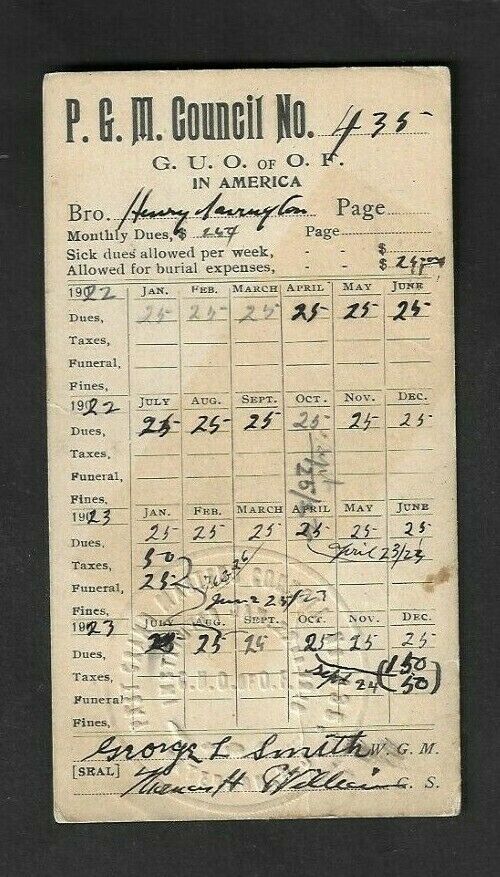 P. G. M. Council No. 435
G. U. O. OF O. F.
IN AMERICA
Bro. Henry Page
Monthly Dues, $ Page
Sick dues allowed per week, - - $
Allowed for burial expenses, - - $
1922 JAN. FEB. MARCH APRIL MAY JUNE
Dues, 25 25 25 25 25 25
Taxes,
Funeral,
Fines,
1922 JULY AUG. SEPT. OCT. NOV. DEC.
Dues, 25 25 25 25 25 25
Taxes,
Funeral,
Fines,
1923 JAN. FEB. MARCH APRIL MAY JUNE
Dues, 25 25 25 25 25 25
April 23/23
Taxes, 50
Funeral, 25
June 25/23
Fines,
1923 JULY AUG. SEPT. OCT. NOV. DEC.
Dues, 25 25 25 25 25 25
Taxes, Sept 24 (50
50)
Funeral
Fines,
George L Smith W. G. M.
[SEAL] Thomas H G. S.